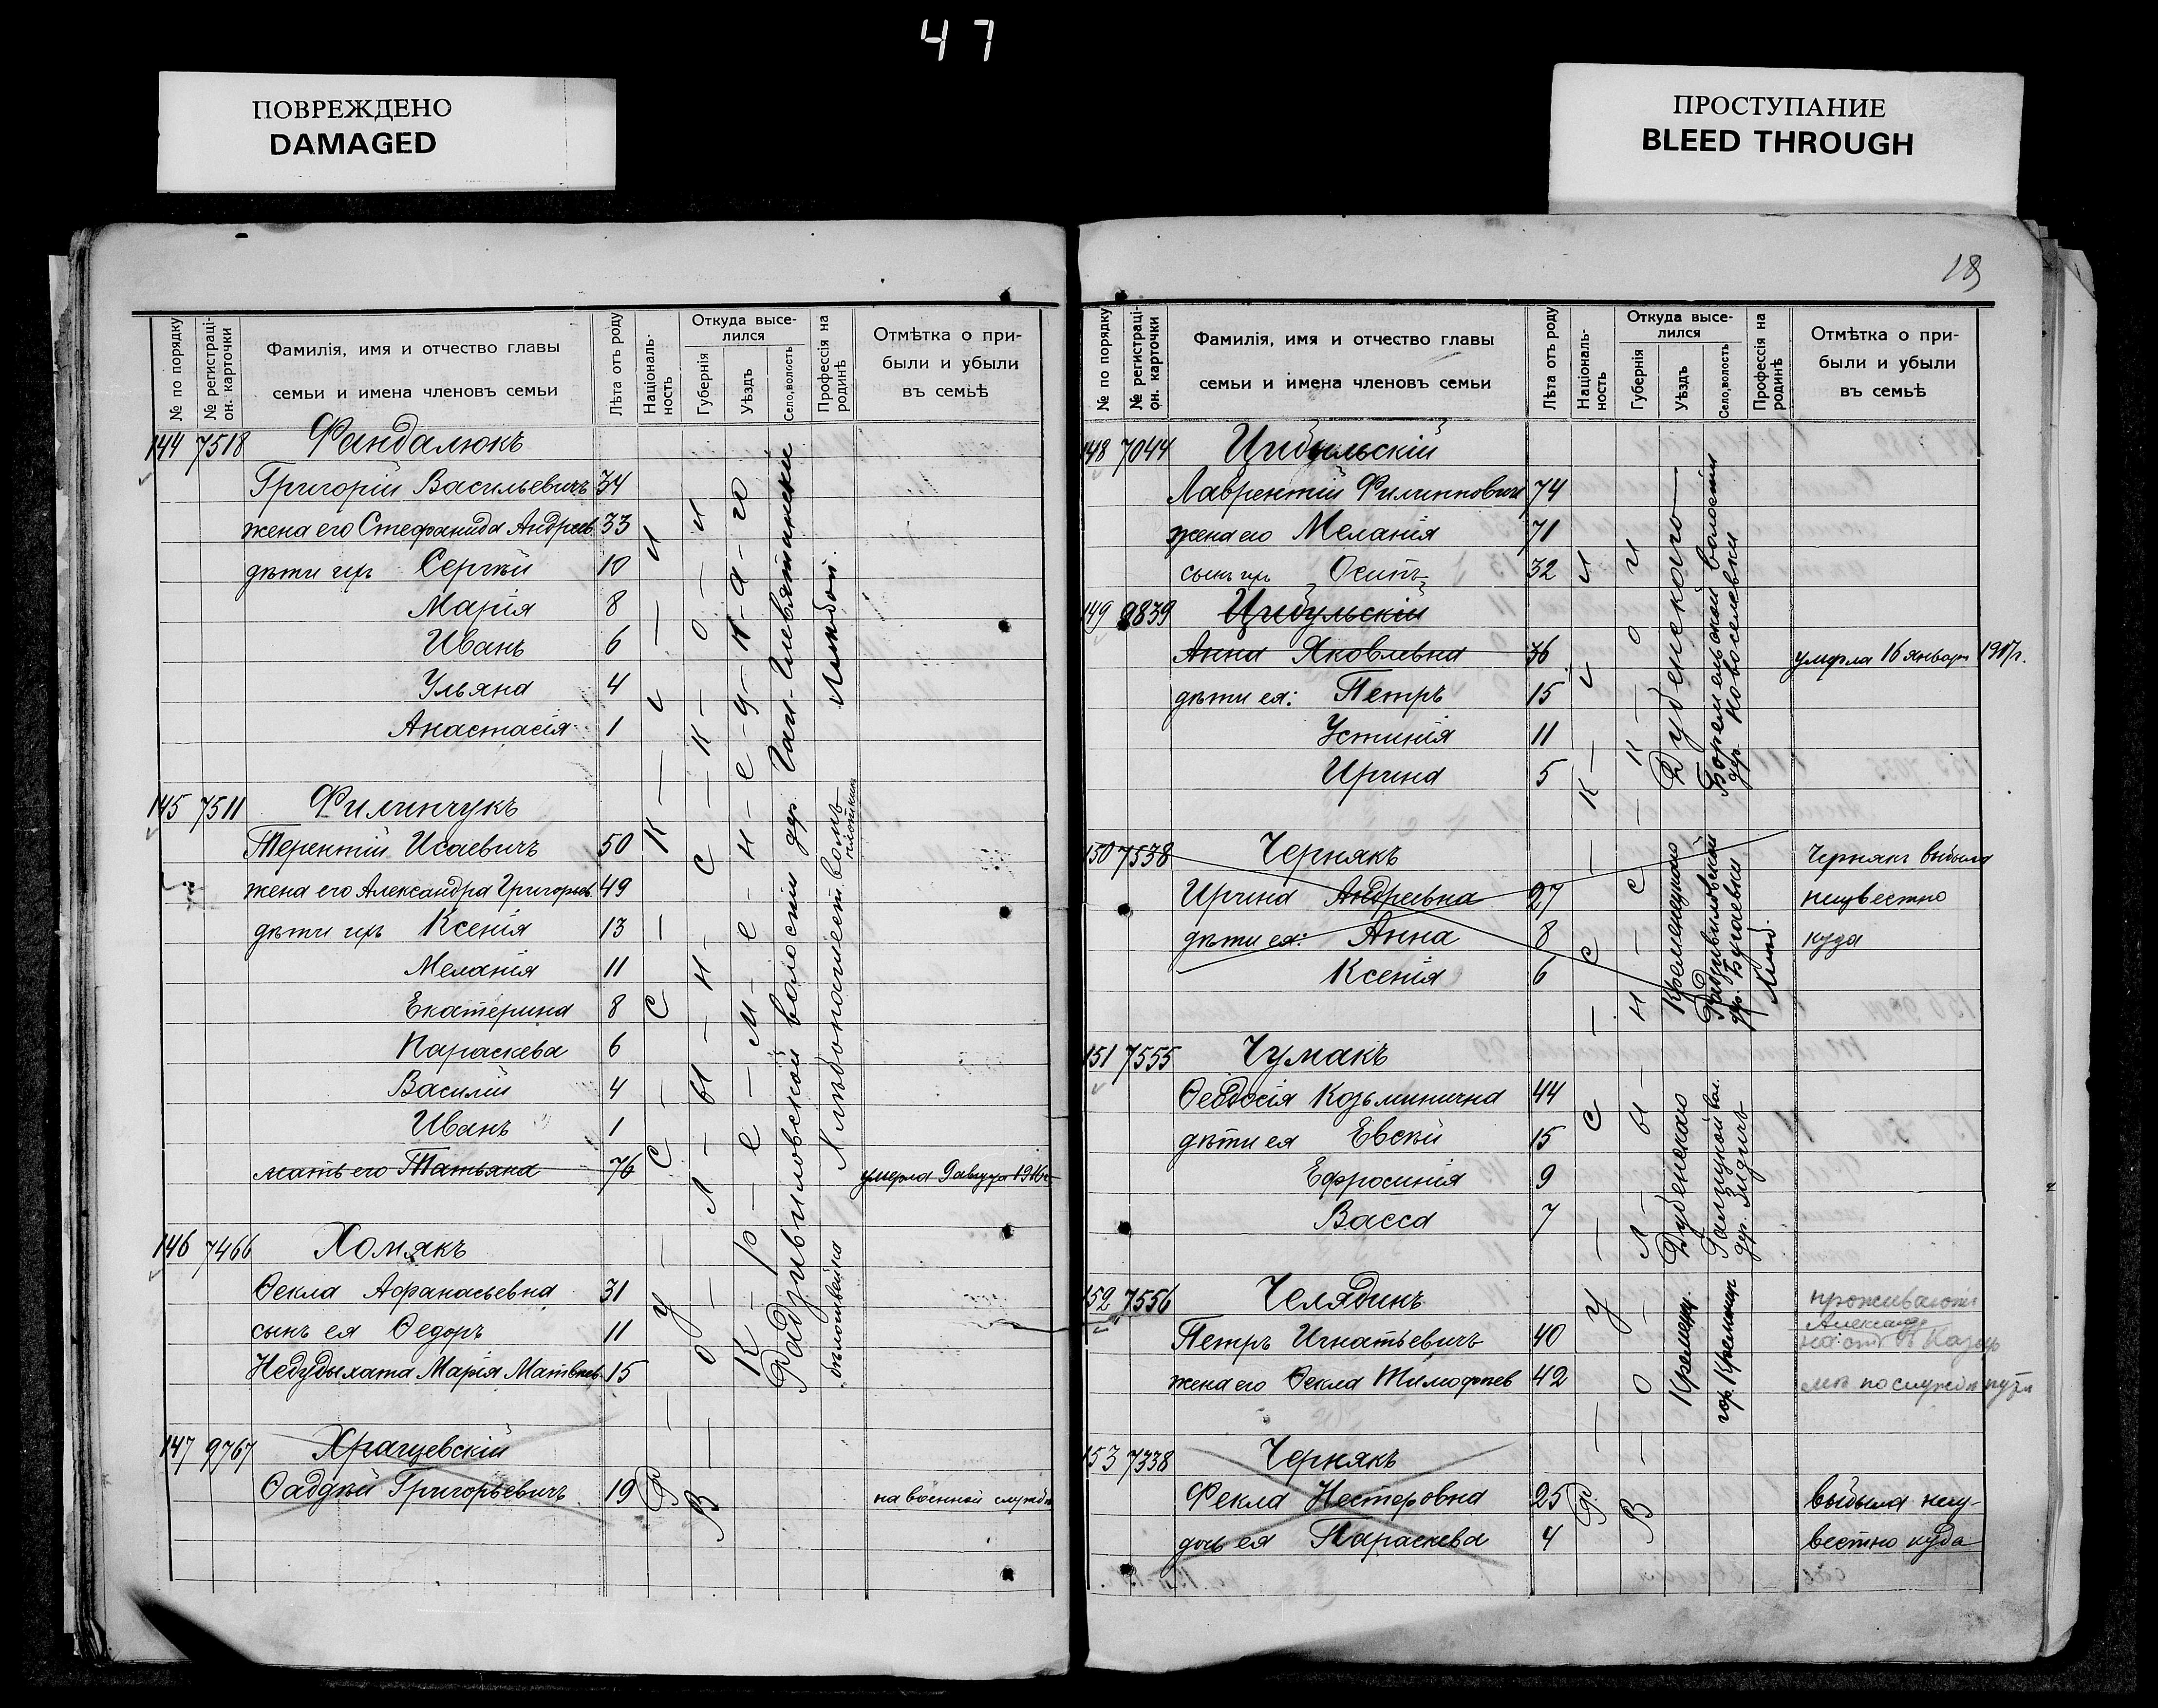 47
ПОВРЕЖДЕНО
DAMAGED
ПРОСТУПАНИЕ
BLEED THROUGH
№ по порядку
№ регистраці-
он. карточки
Фамилія, имя и отчество главы
семьи и имена членовъ семьи
Лѣта отъ роду
Національ-
ность
Откуда высе-
лился
Губернія
Уѣздъ
Село, волость
Профессія на
родинѣ
Отмѣтка о при-
были и убыли
въ семьѣ
144 7518 Фандалюкъ
Григорій Васильевичъ 34
жена его Стефанида Андреев. 33
дѣти ихъ Сергѣй 10
Марія 8
Иванъ 6
Ульяна 4
Анастасія 1
145 7511 Филинчукъ
Терентій Исаевичъ 50
жена его Александра Григорьев. 49
дѣти ихъ Ксенія 13
Меланія 11
Екатерина 8
Параскева 6
Василій 4
Иванъ 1
мать его Татьяна 76 умерла 9 августа 1916 г.
146 7466 Хомякъ
Ѳекла Афанасьевна 31
сынъ ея Ѳедоръ 11
Недудыхата Марія Матвѣев. 15
147 9767 Хращевскій
Фаддѣй Григорьевичъ 19 на военной службѣ
Р-у-с-с-к-і-и
В-о-л-ы-н-с-к-о-и
К-р-е-м-е-н-е-ц-к-а-го
Радзивиловской волости дер.
18
№ по порядку
№ регистраці-
он. карточки
Фамилія, имя и отчество главы
семьи и имена членовъ семьи
Лѣта отъ роду
Національ-
ность
Откуда высе-
лился
Губернія
Уѣздъ
Село, волость
Профессія на
родинѣ
Отмѣтка о при-
были и убыли
въ семьѣ
148 7044 Цибульскій
Лаврентій Филипповичъ 74
жена его Меланія 71
сынъ ихъ Осипъ 32
149 9839 Цибульскій
Анна Яковлевна 36 умерла 16 января 1917 г.
дѣти ея: Петръ 15
Устинія 11
Ирина 5
150 7538 Чернякъ Чернякъ выбыла
Ирина Андреевна 27 неизвестно
дѣти ея: Анна 8 куда
Ксенія 6
151 7555 Чумакъ
Ѳеодосія Козьминична 44
дѣти ея Евсѣй 15
Ефросинія 9
Васса 7
152 7556 Челядинъ проживаютъ
Александр
Петръ Игнатьевичъ 40
жена его Ѳекла Тимофеев 42
153 7338 Чернякъ
Фекла Нестеровна 25 выбыла неиз-
дочь ея Параскева 4 вестно куда
Дубенскаго
Боремельской волости
дер. Новоселевки
Кременецкаго
Радзивиловской
дер. Бугаевки
Дубенскаго
дер.
Кременец.
гор. Кременецъ